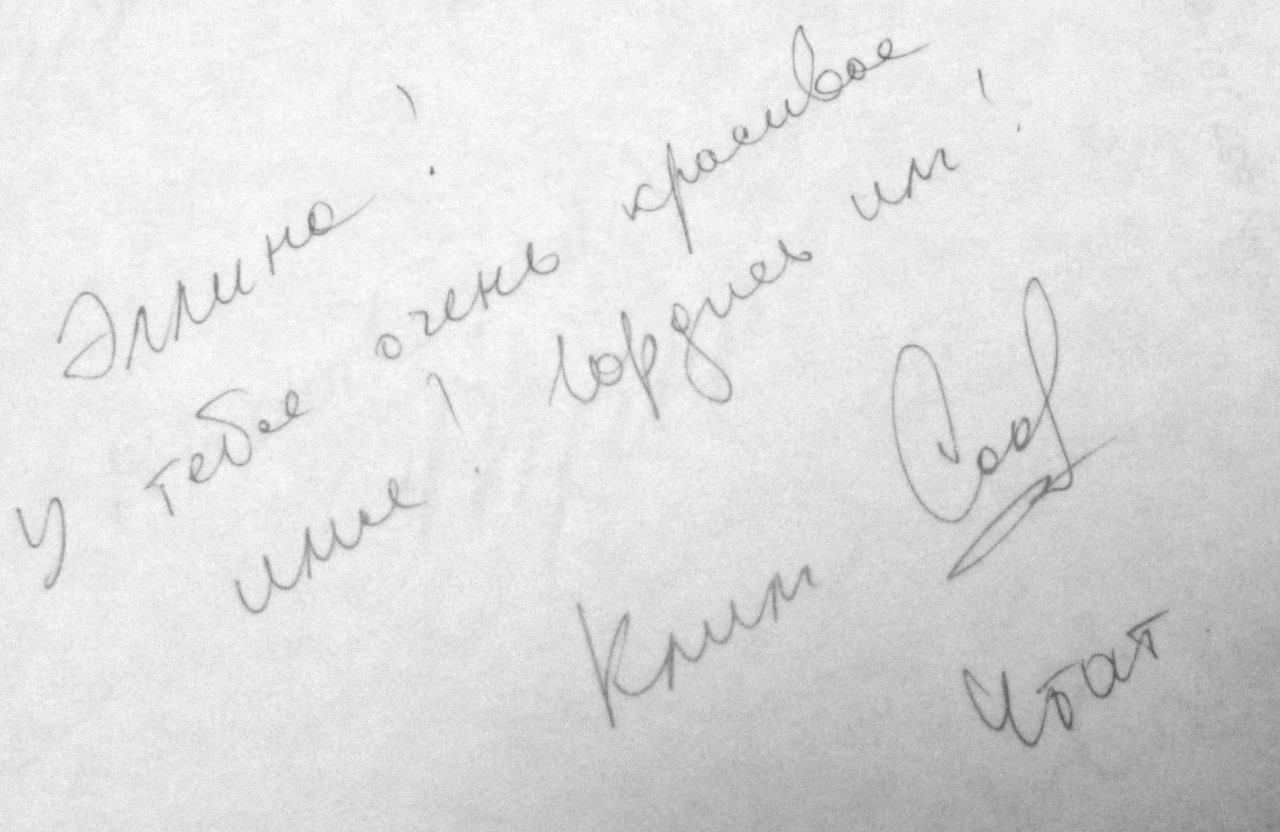 Эллина!
У тебя очень красивое
имя! Гордись им!
Клим